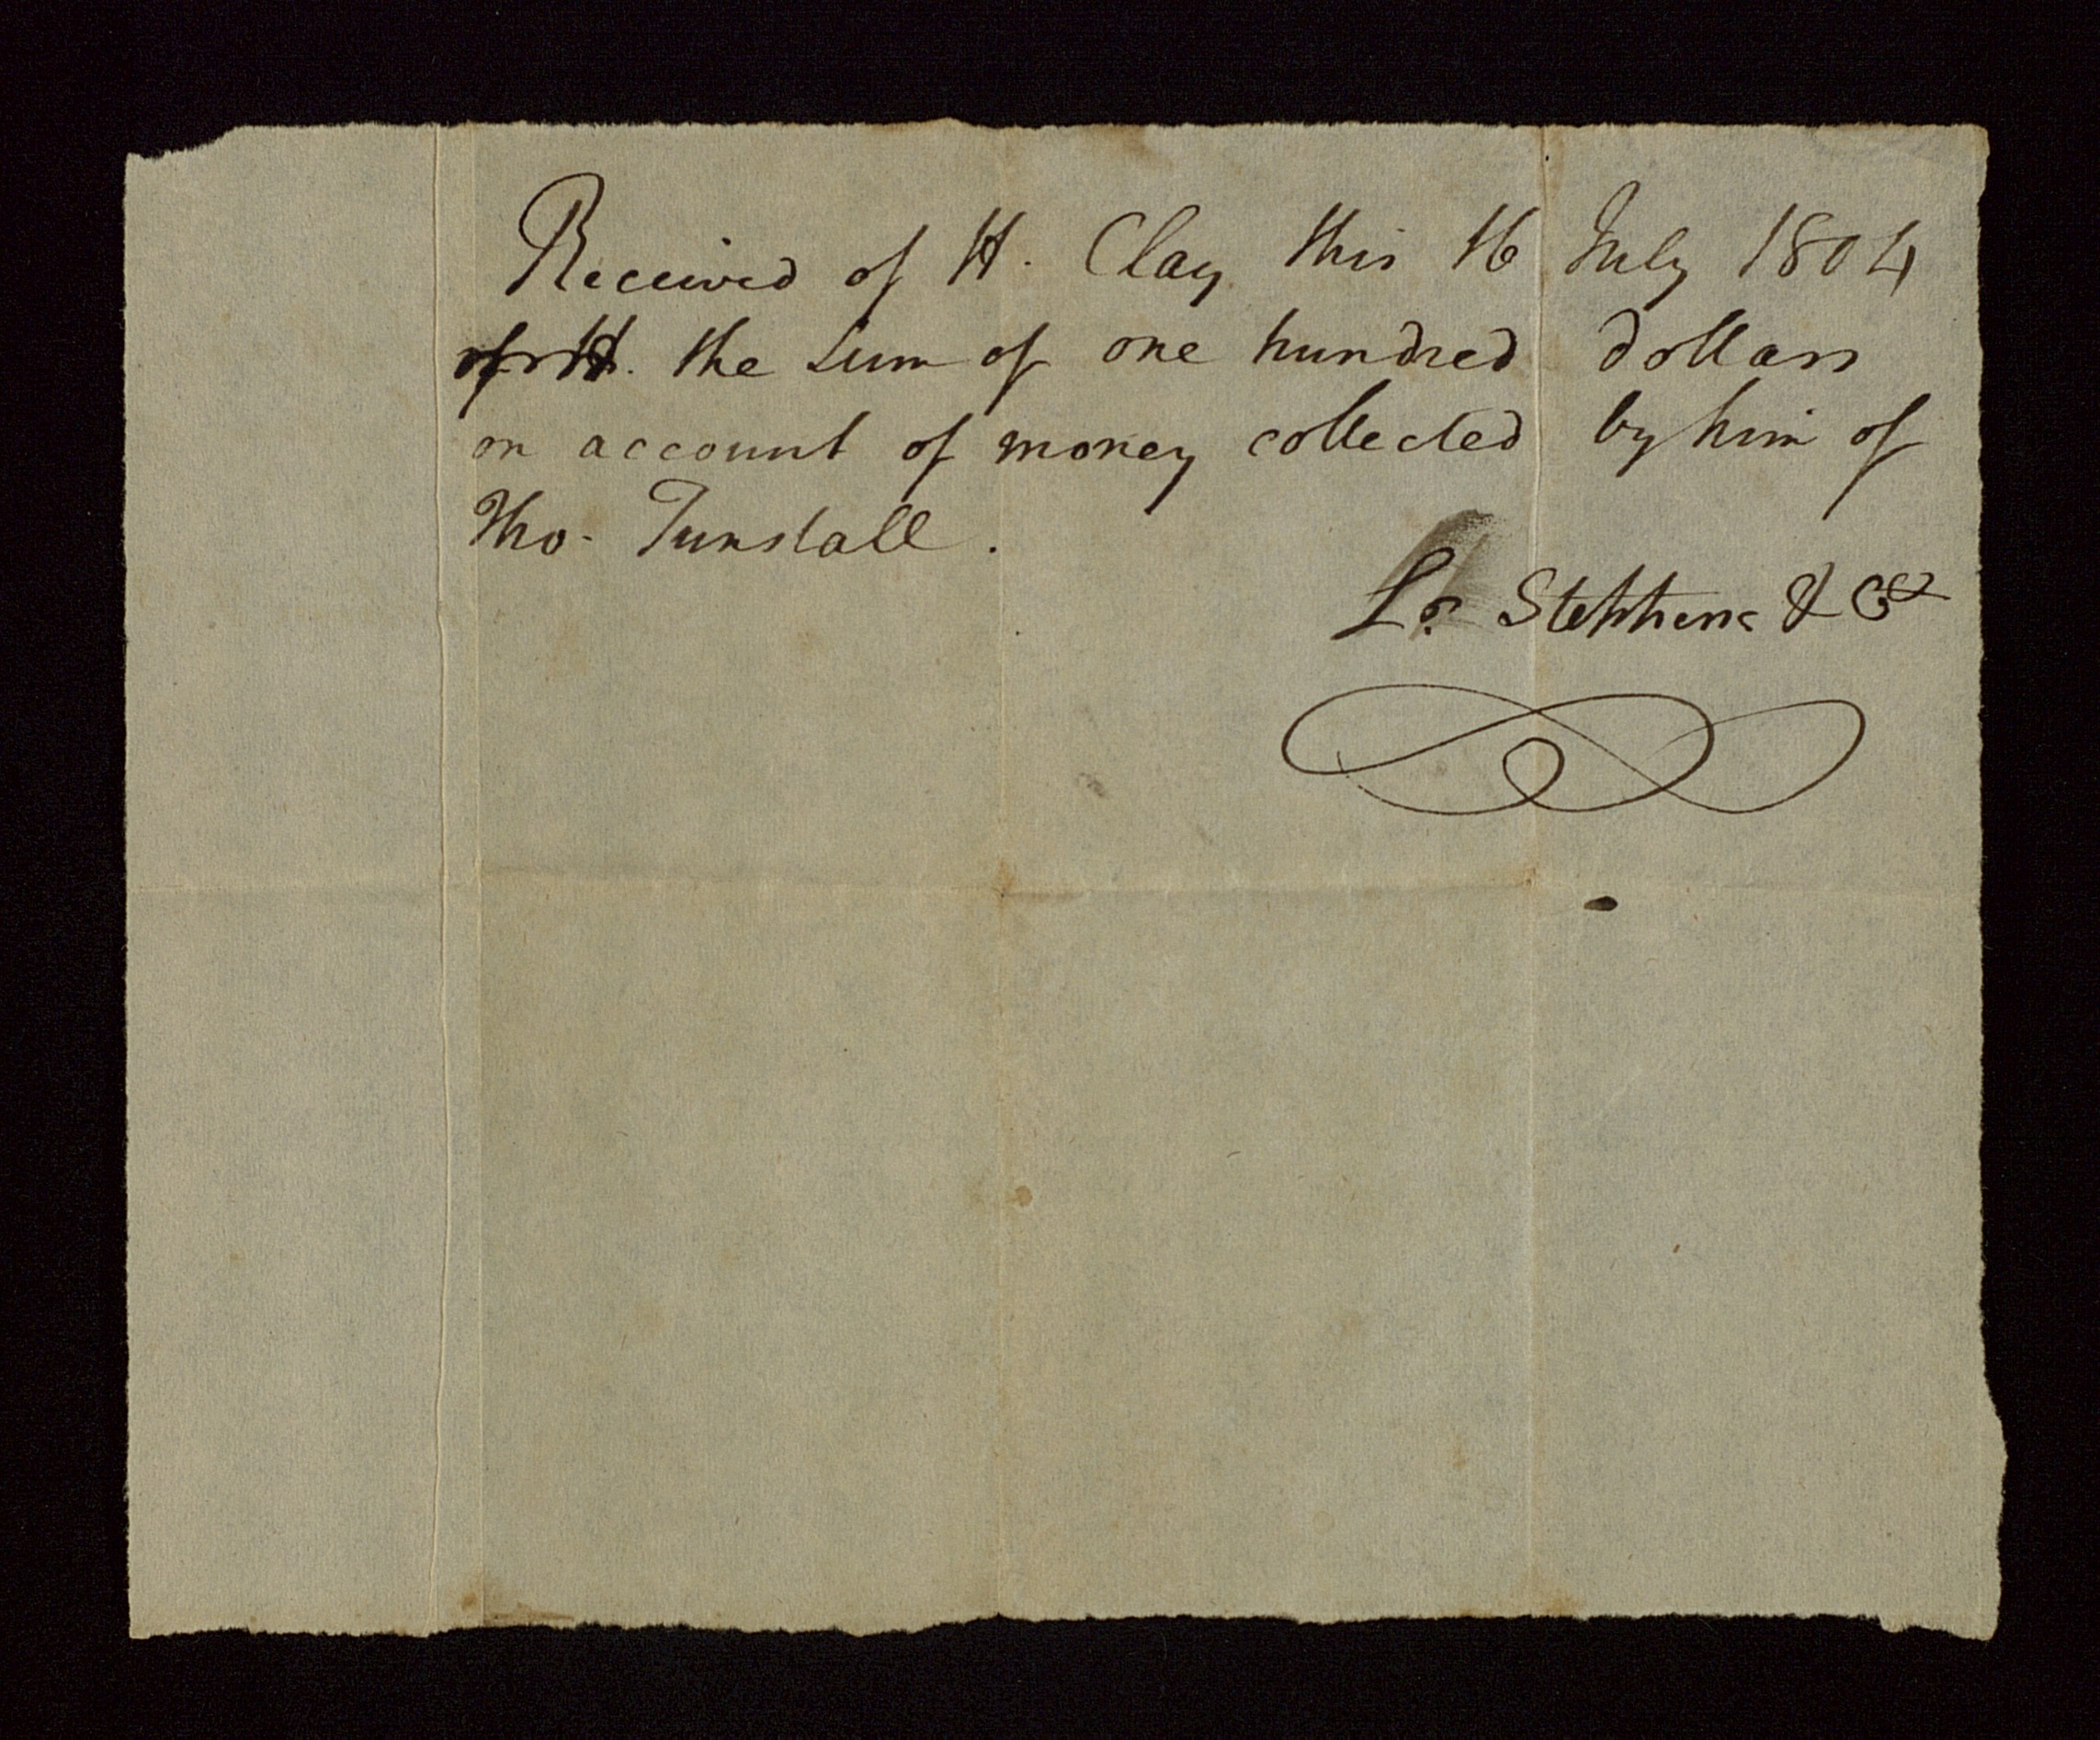 Received of H. Clay this 16 July 1804
of H. the sum of one hundred dollars
on account of money collected by him of
Tho. Tunstall.
Ls. Stephens & Co